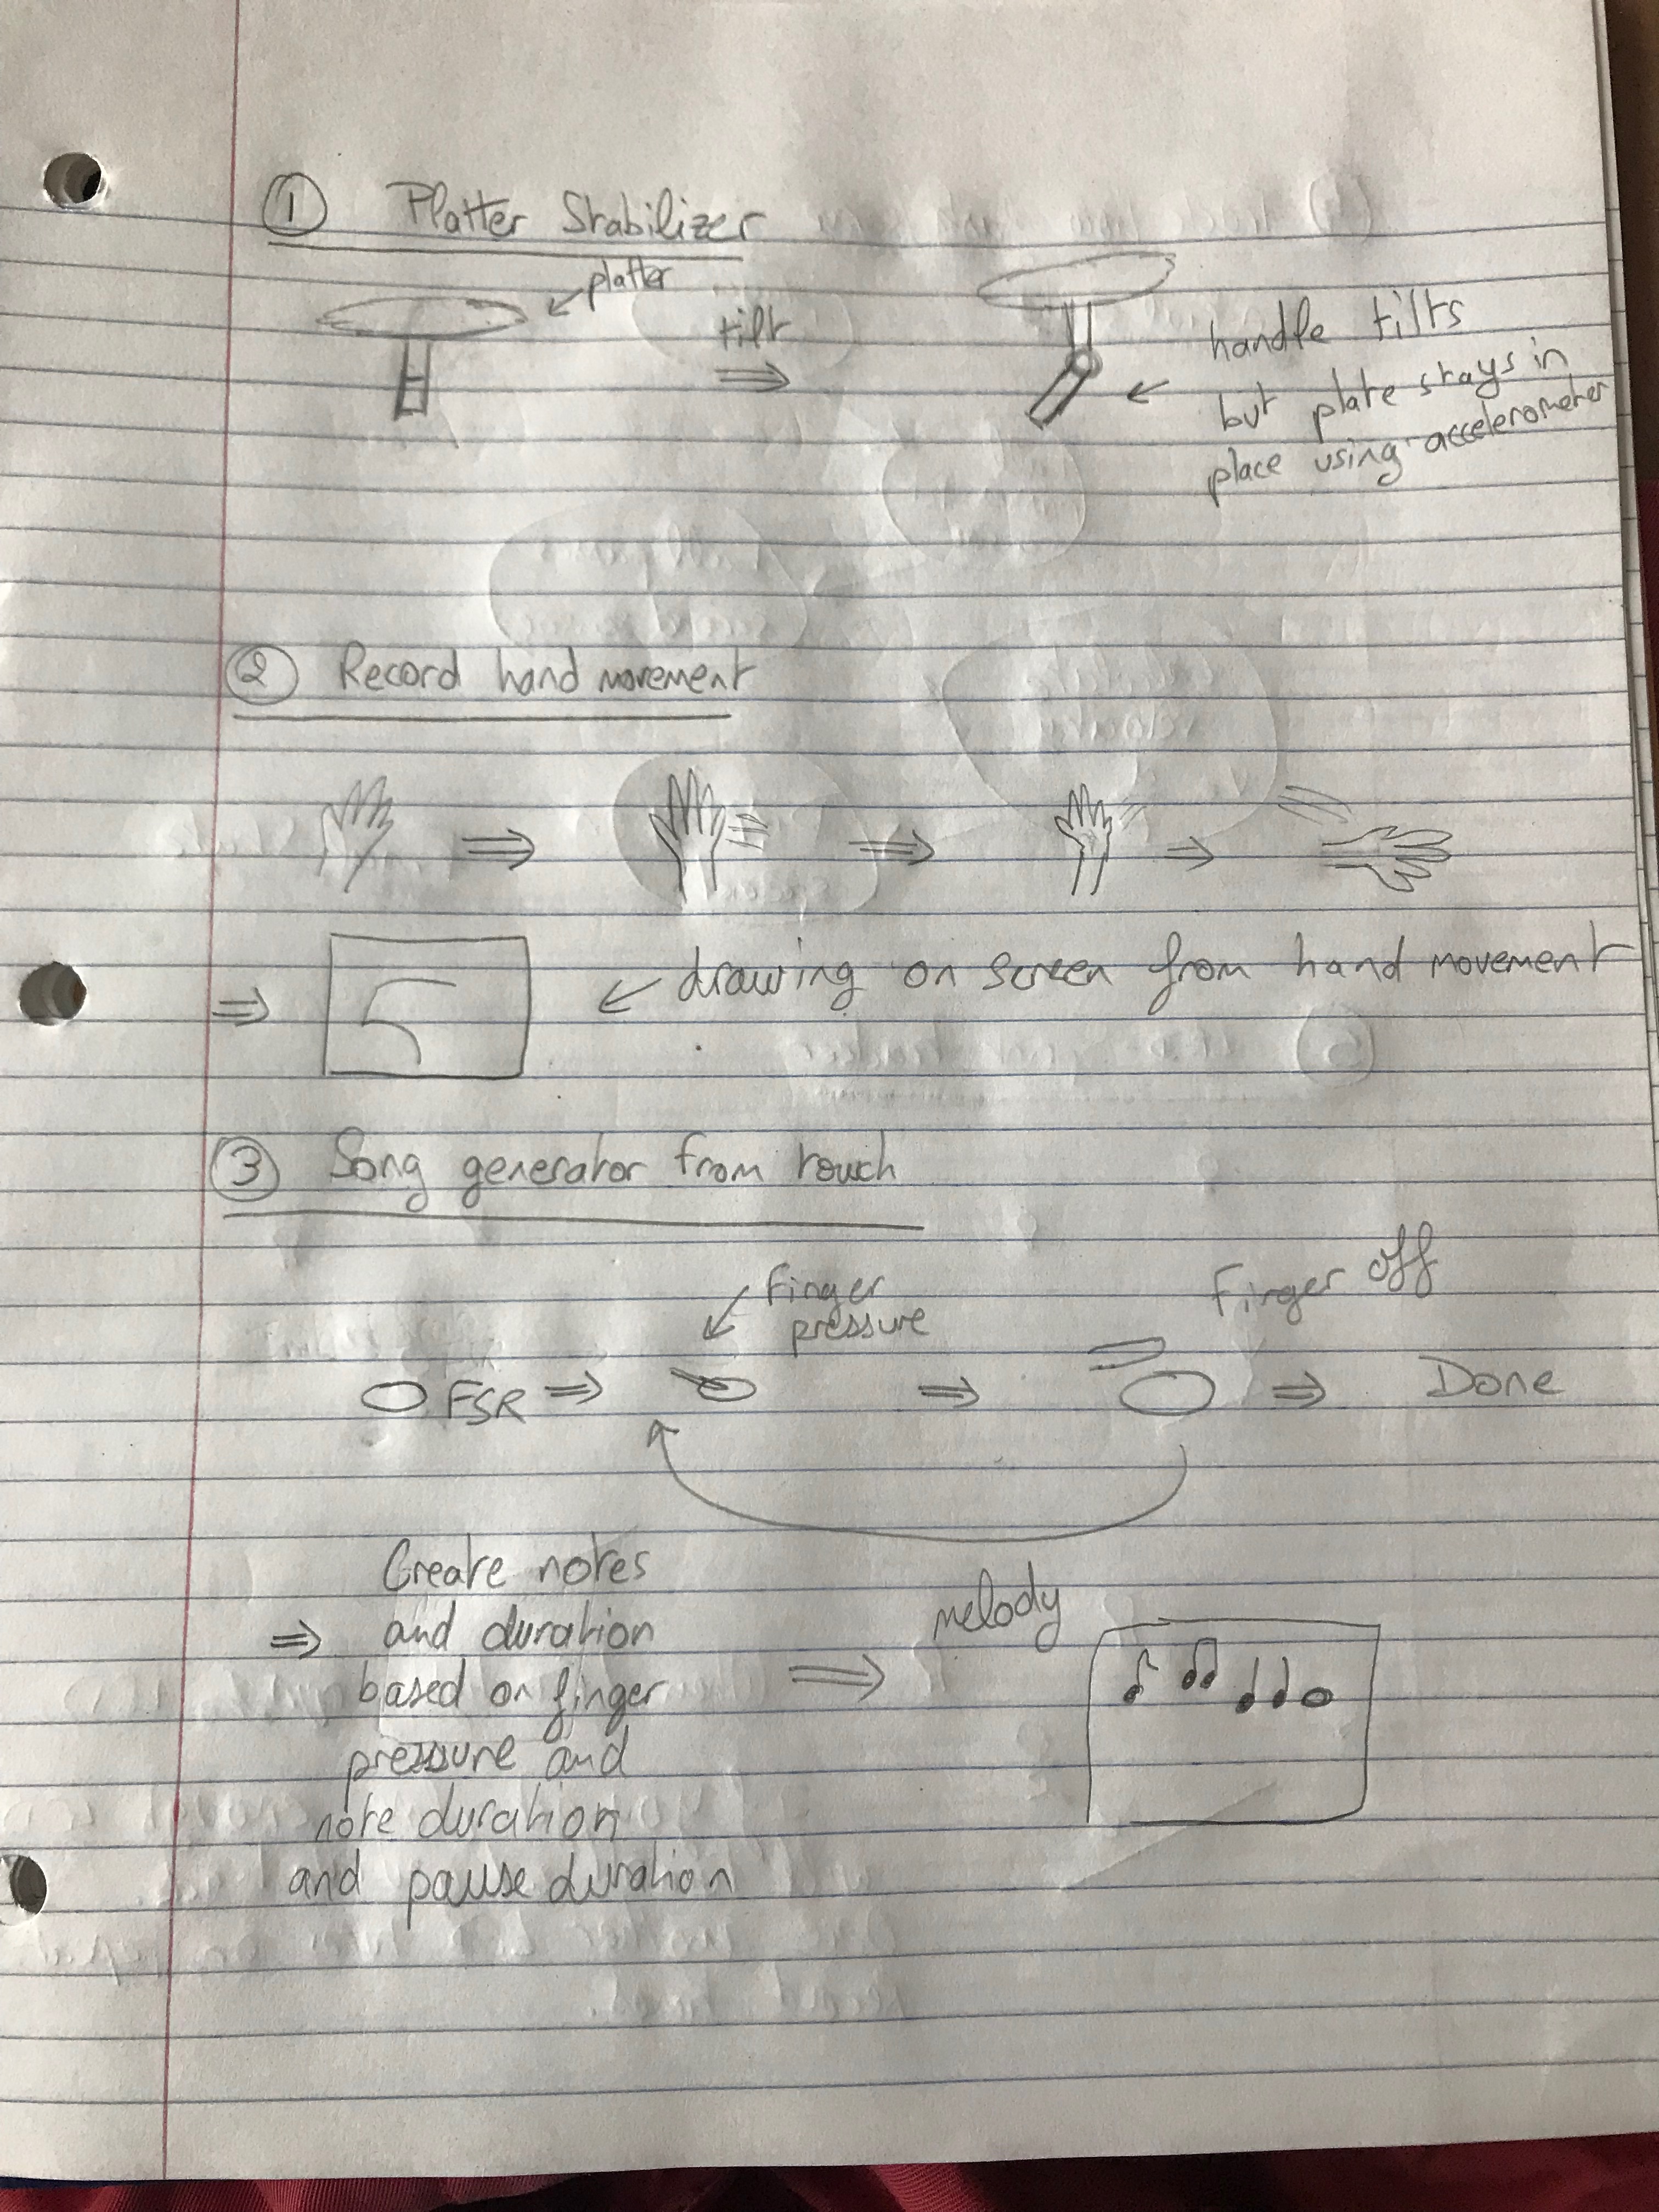 ① Platter Stabilizer
platter
tilt
handle tilts
but plate stays in
place using accelerometer
② Record hand movement
drawing on screen from hand movement
③ Song generator from touch
Finger
pressure
Finger off
FSR
Done
Create notes
and duration
based on finger
pressure and
note duration
and pause duration
melody